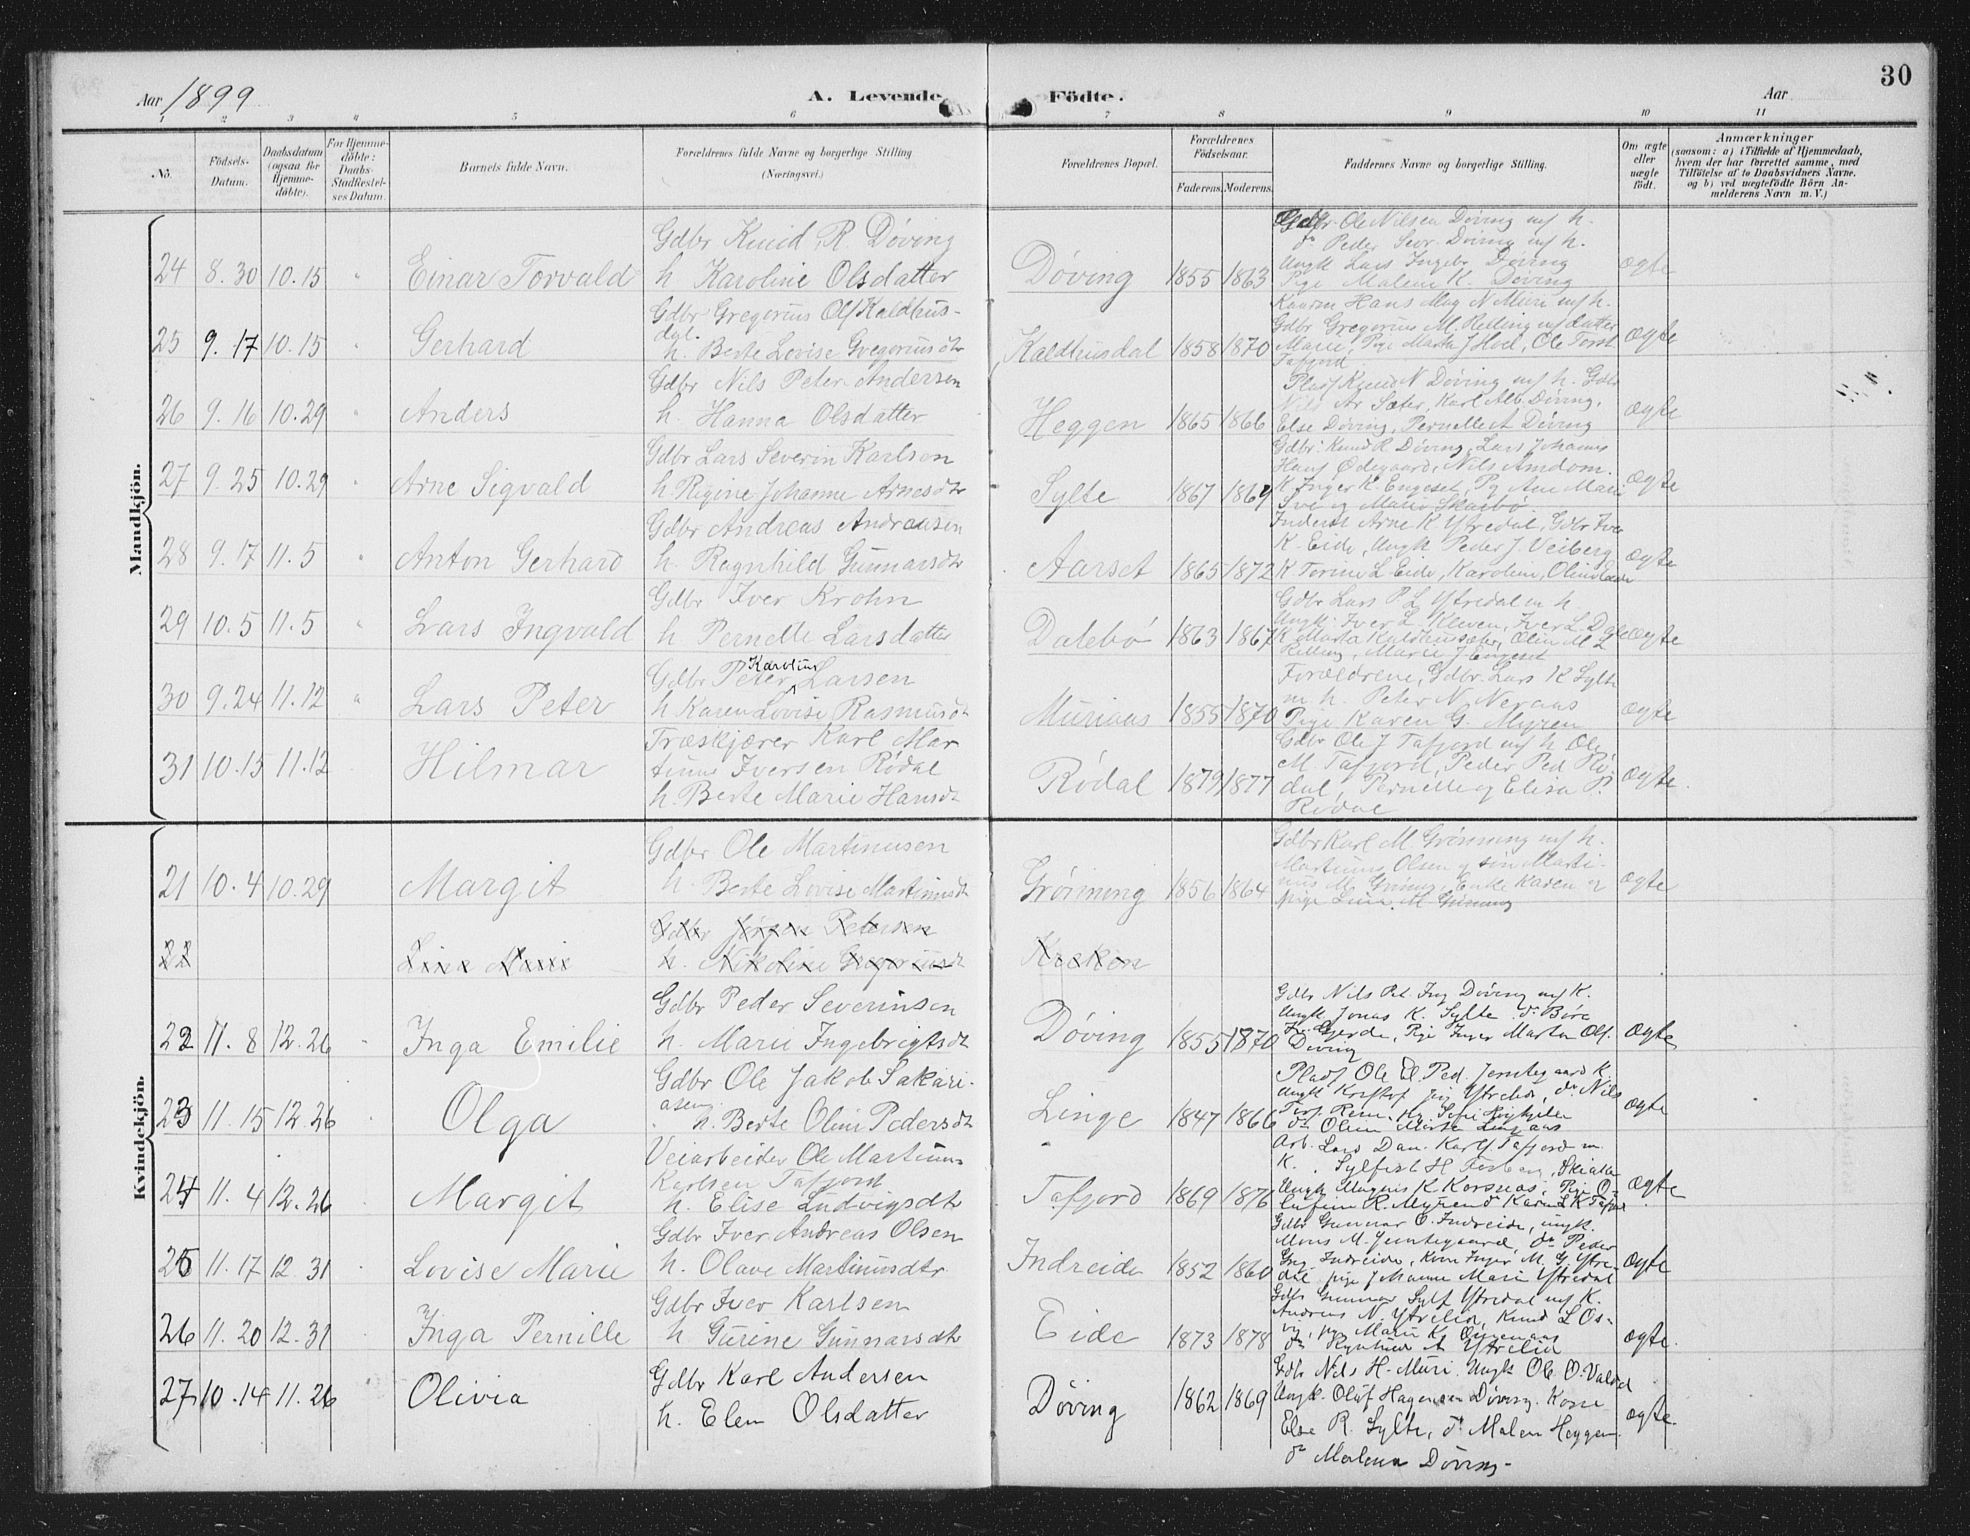 30
Aar 1899
A. Levende
Födte.
Aar
1 2 3 4 5 6 7 8 9 10 11
No.
Födsels-Datum.
Daabsdatum (ogsaa for Hjemmedöbte).
For Hjemmedöbte: Daabs-Stadfæstelses Datum.
Barnets fulde Navn.
Forældrenes fulde Navne og borgerlige Stilling (Næringsvei.)
Forældrenes Bopæl.
Forældrenes Födselsaar.
Faderens. Moderens.
Faddernes Navne og borgerlige Stilling.
Om ægte eller uægte födt.
Anmærkninger
(saasom: a) i Tilfælde af Hjemmedaab, hvem der har forrettet samme, med Tilföielse af to Daabsvidners Navne, og b) ved uægtefödte Börn Anmelderens Navn m. V.)
Mandkjön.
24 8.30 10.15 " Einar Torvald Gdbr Knud R. Døving h. Karoline Olsdatter Døving 1855 1863 Gdbr Ole Nilsen Døving m/ h. do Peder Sevr. Døving m/ h. Ungk Lars Ingebr. Døving Pige Malene K. Døving ægte
25 9.17 10.15 " Gerhard Gdbr Gregorius Ols Kaldhusdal. h. Berte Lovise Gregoriusdtr Kaldhusdal 1858 1870 Hans N Muri m/ h. Gdbr Gregorius M. Relling m/ datter Marie, Pige Marta J Hoel, Ole Torst Tafjord ægte
26 9.16 10.29 " Anders Gdbr Nils Peter Andersen h. Hanna Olsdatter Heggen 1865 1866 Pladsf Knud N Døving m/ h. Gdbr Nils Ar Sæter, Karl Alb. Døving, Else Døving, Pernelle A Døving ægte
27 9.25 10.29 " Arne Sigvald Gdbr Lars Severin Karlsen h. Regine Johanne Arnesdtr Sylte 1867 1869 Gdbr: Knud R Døving, Lars Johannes Hans Ødegaard, Nils Amdam. K. Inger K. Engeset, Pg Ane Marie og Marie Skaibø. ægte
28 9.17 11.5 " Anton Gerhard Gdbr Andreas Andreasen h. Ragnhild Gunnarsdtr Aarset 1865 1872 Inderst Arne K Ytredal, Gdbr Iver K. Eide, Ungk Peder J. Veiberg K Torine L Eide, Karoline, Oline ægte
29 10.5 11.5 " Lars Ingvald Gdbr Iver Krohn h. Pernelle Larsdatter Dalebø 1863 1867 Gdbr Lars P L Ytredal m h. Ungk. Iver L. Kleven, Iver L Dale K Marta Kaldhussæter, Olin M L Relling, Marie J Engeset ægte
30 9.24 11.12 " Lars Peter Gdbr Peter Karolius Larsen h Karen Lovise Rasmusdt Muriaas 1855 1870 Forældrene, Gdbr. Lars K Sylte m h. Peter N Neraas Pige Karen G. Myren ægte
31 10.15 11.12 Hilmar Træskjærer Karl Martinus Iversen Rødal h. Berte Marie Hansdt Rødal 1879 1877 Gdbr Ole J Tafjord m/ h Ole M. Tafjord, Peder Ped Rødal, Pernelle og Elisa P. Rødal ægte.
Kvindekjön.
21 10.4 10.29 Margit Gdbr Ole Martinusen h. Berte Lovise Martinusdt Grønning 1856 1864 Gdbr Karl M Grønning m/ h. Martinus Olsen og søn Martinus M. Grønng, Enke Karen og pige Lina M Grønning ægte
22 Line Marie Gdbr Jørgen Petersen h. Nikoline Gregoriusdt Kroken
22 11.8 12.26 Inga Emilie Gdbr Peder Severinsen h. Marie Ingebrigtsdt Døving 1855 1870 Gdbr Nils Pet. Ing Døving m/ K. Ungk Jonas K. Sylte Gjerde, Pige Inger Marta Ols. Døving ægte
23 11.15 12.26 Olga Gdbr Ole Jakob Sakariasen. h. Berte Oline Pedersdt Linge 1847 1866 Pladsf Ole El. Ped. Jemtegaard K. Ungk Ytrelid, do Nils do Oline Marta Lingaas ægte
24 11.4 12.26 Margit Veiarbeider Ole Martinus Karlsen Tafjord h. Elise Ludvigsdtr Tafjord 1869 1876 Arb. Lars Dan. Karls Tafjord m K. Ungk Magnus K Korsnæs, Pige R. Myren do Karen L K Tafjord ægte
25 11.17 12.31 Lovise Marie Gdbr Iver Andreas Olsen h. Olave Martinusdtr. Indreide 1852 1860 Gdbr Gunnar O. Indreide, ungk. Mons M. Jemtegaard, do Peder Indreide, Kone Inger M. G Ytredal, pige Johanne Marie Ytredal ægte
26 11.20 12.31 Inga Pernille Gdbr Iver Karlsen h. Gurine Gunnarsdtr Eide 1873 1878 Gdbr Gunnar Sylf Ytredal m/ K. Andreas N. Ytrelid, Knud L Marie K. do Ragnhild A Ytrelid ægte.
27 10.14 11.26 Olivia Gdbr Karl Andersen h. Elen Olsdatter Døving 1862 1869 Gdbr Nils H. Muri. Ungk Ole O. Valdal Ungk. Oluf Hagensen Døving. Kone Else R. Sylte, do Malen Heggen. do Marlena Døving ægte.